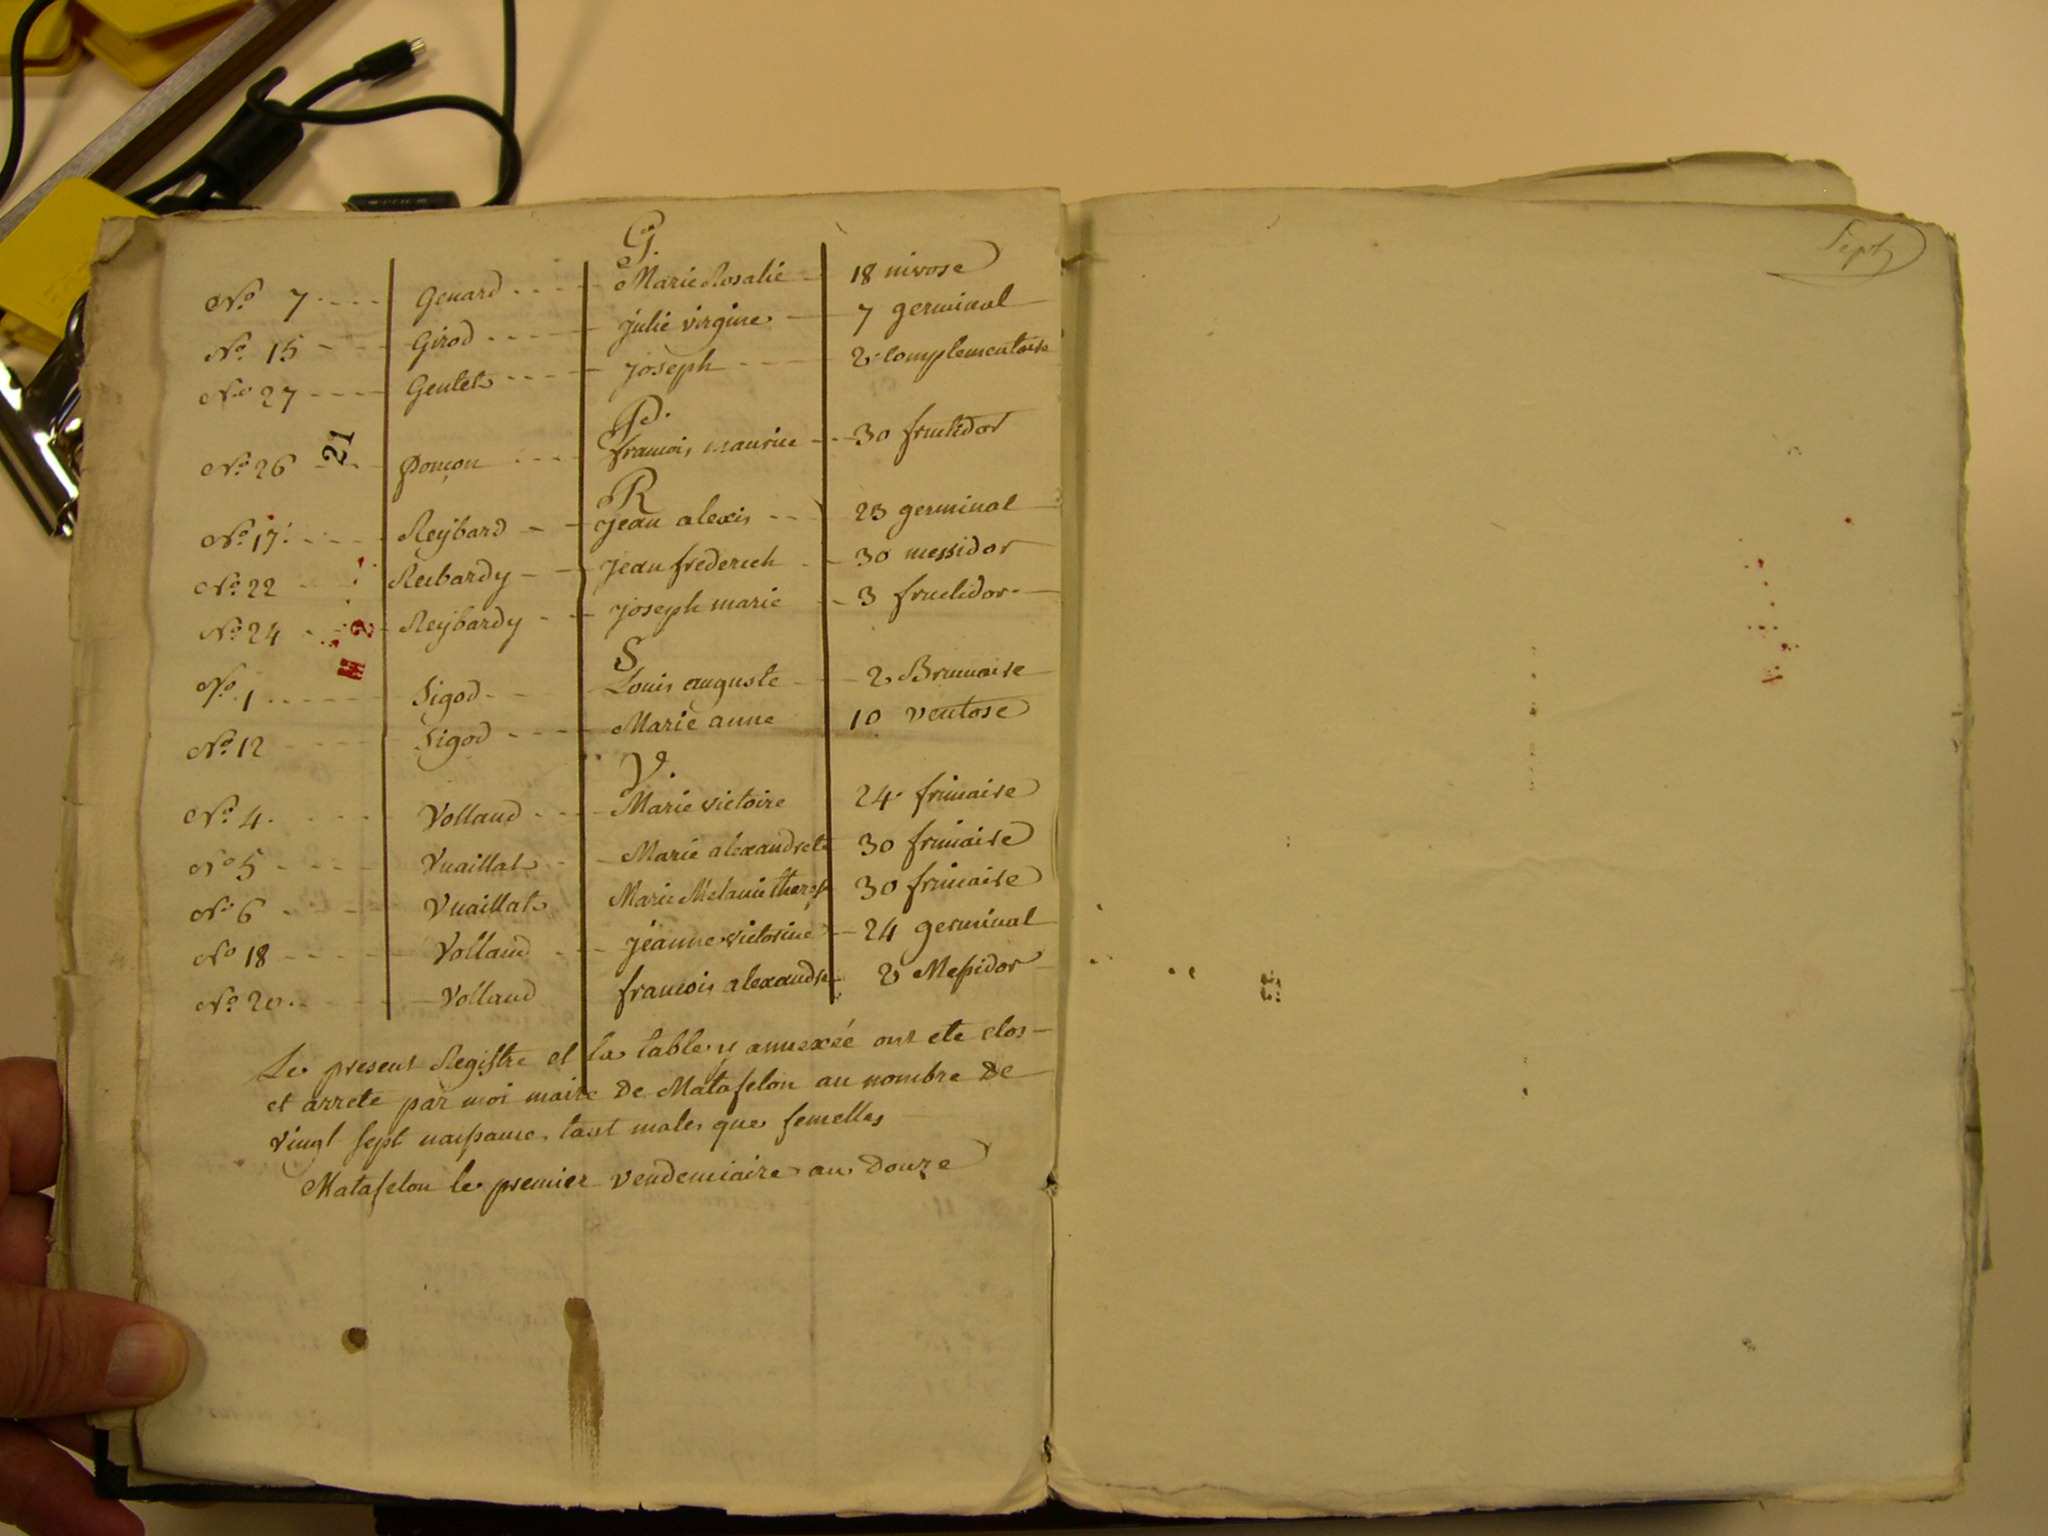 G.
No 7 Genard Marie Rosalie 18 nivose
No 15 Girod julie virgine 7 germinal
No 27 Gentet joseph 2 complementaire
P.
No 26 21 ponçon francois maurice 30 fructidor
R
No 17 Reÿbard jean alexis 23 germinal
No 22 Reibardy jean frederich 30 messidor
No 24 Reÿbardy joseph marie 3 fructidor
S
No 1 Sigod Louis auguste 2 Brumaire
No 12 Sigod Marie anne 10 ventose
V.
No 4 Volland Marie victoire 24 frimaire
No 5 Vuaillat Marie alexandrete 30 frimaire
No 6 Vuaillat Marie Melanie therese 30 frimaire
No 18 Volland jeanne victorine 24 germinal
No 20 Volland francois alexandre 2 Messidor
Le present Registre et la table y annexée ont ete clos
et arrete par moi maire de Matafelon au nombre de
vingt sept naissance tant males que femelles
Matafelon le premier vendemiaire an douze
Sept